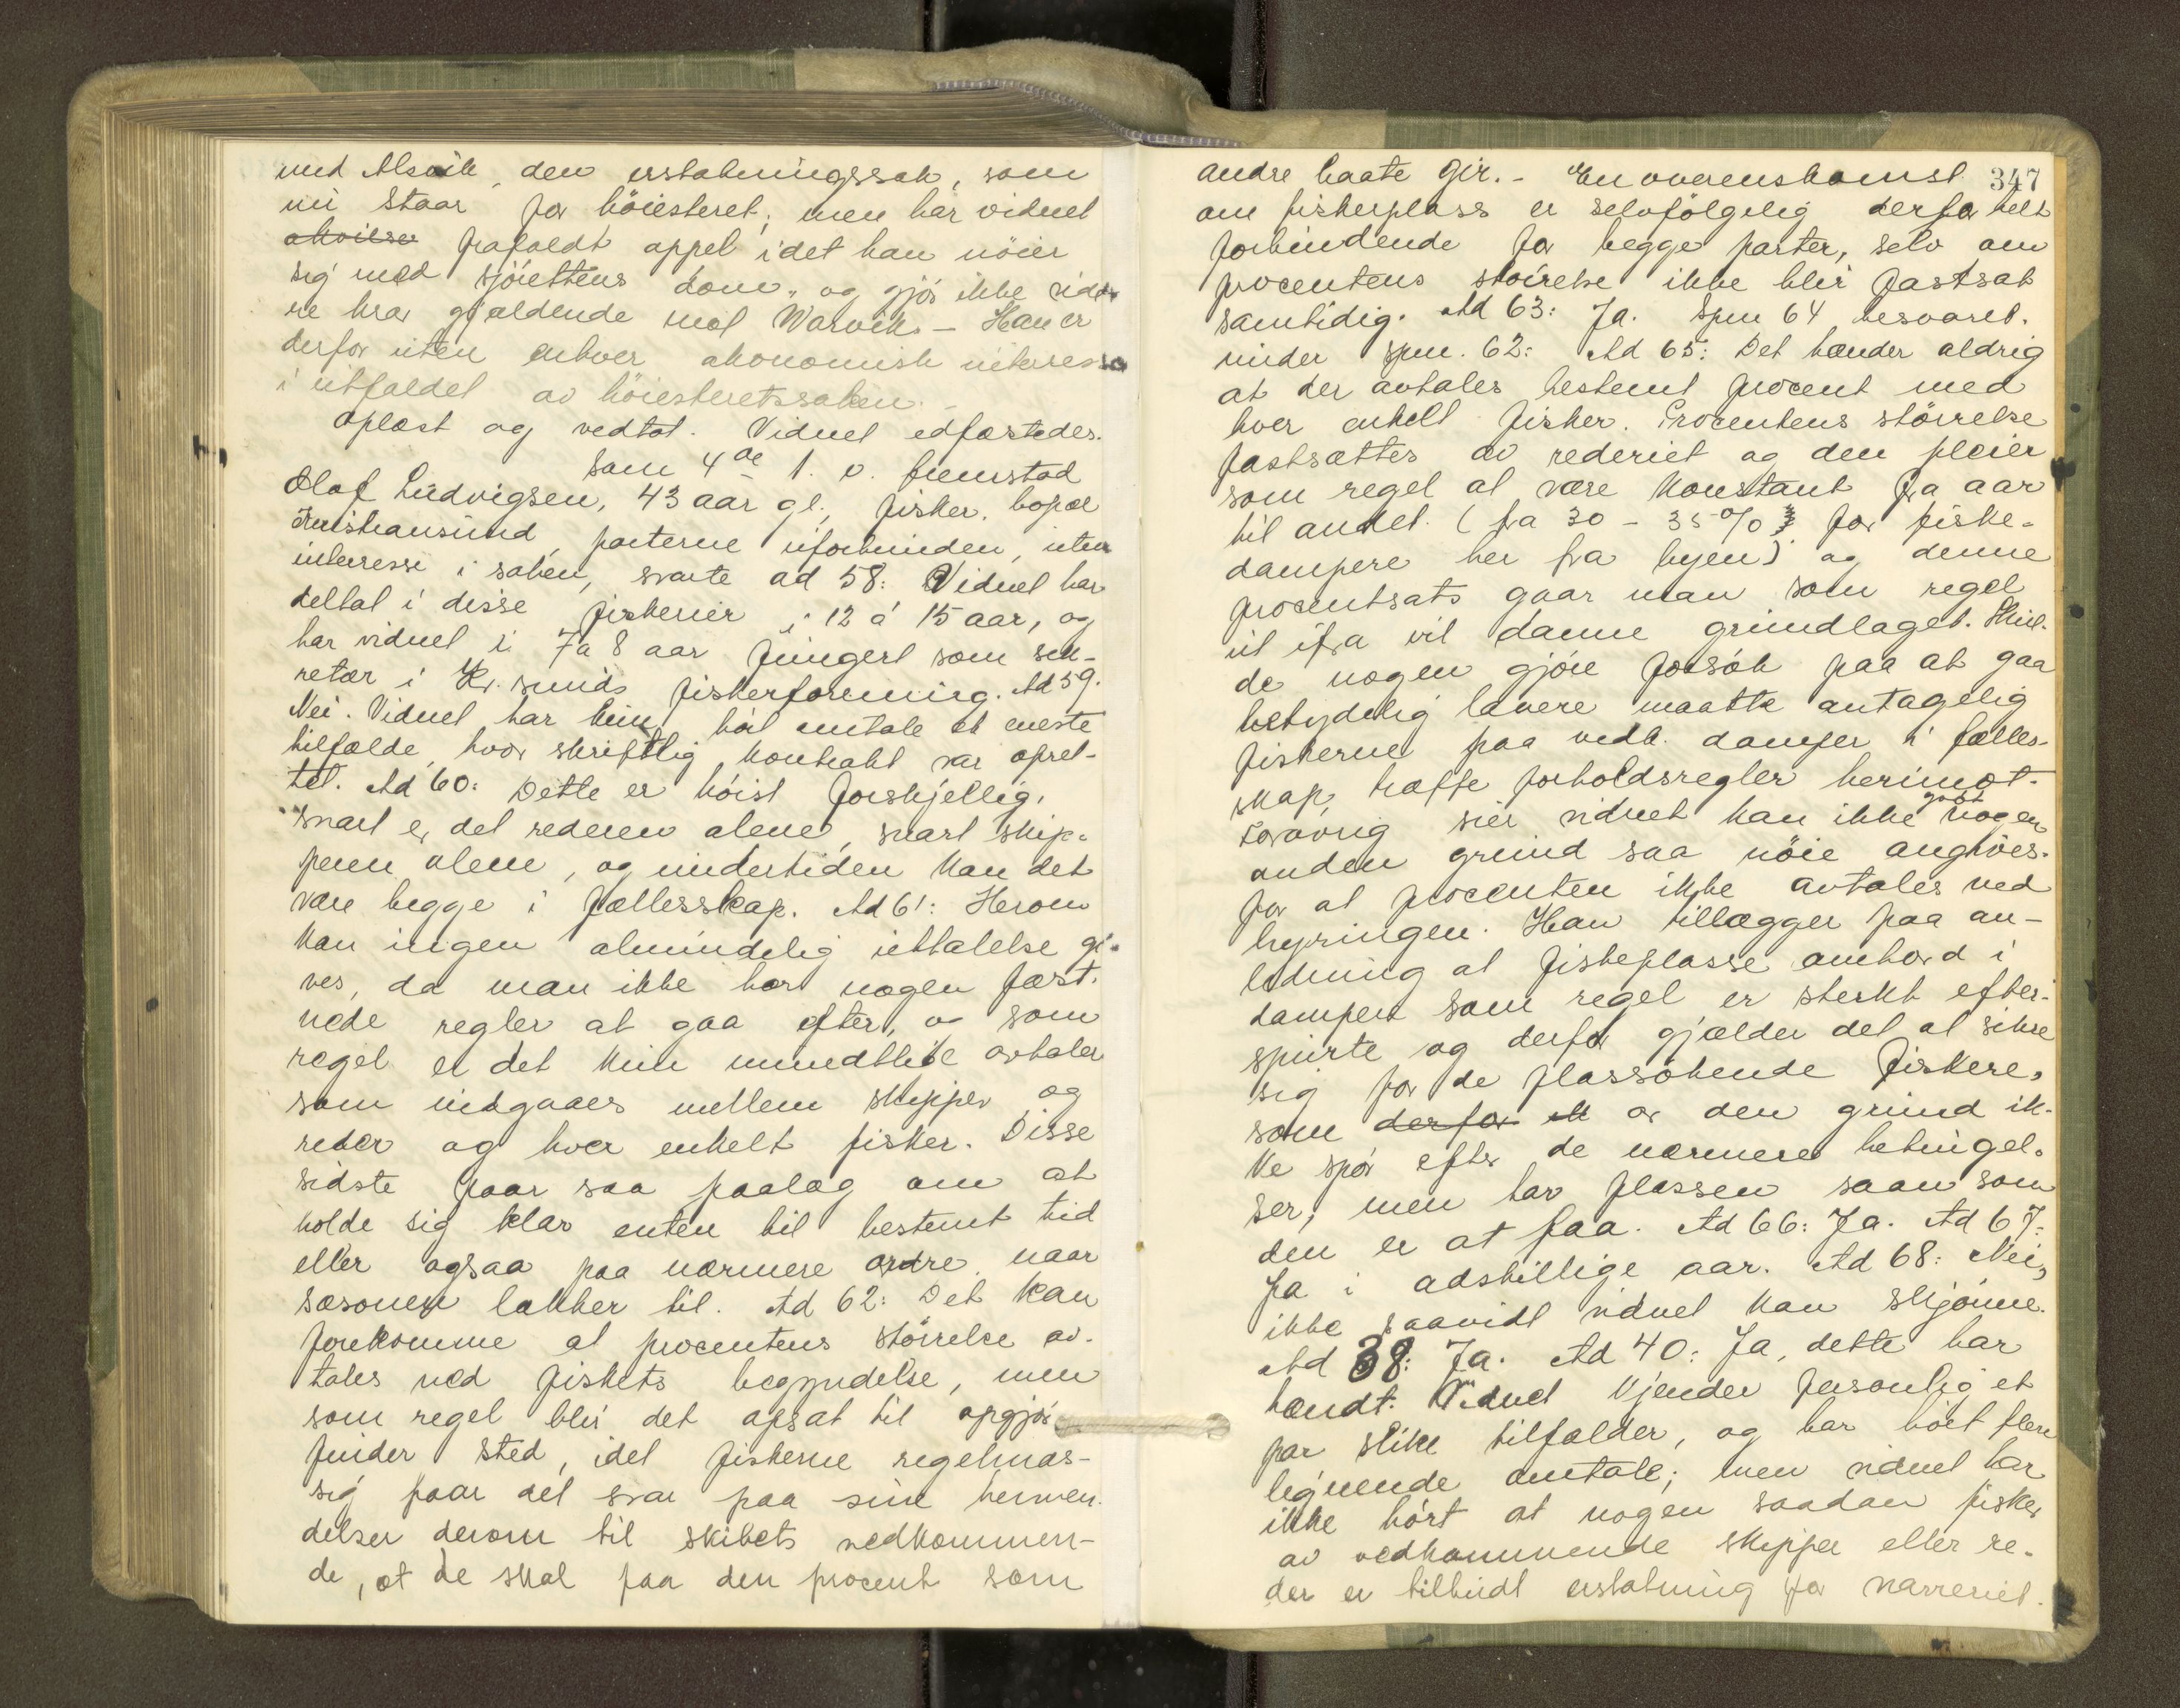 med Alsvik, den erstatningssak, som
nu staar for høiesteret; men har vidnet
frafaldt appel idet han nøier
sig med sjørettens dom, og gjør ikke vide-
re krav gjældende mot Warvik. - Han er
derfor uten enhver økonomisk interesse
i utfaldet av høiesteretssaken. -
Oplæst og vedtat. Vidnet edfæstedes.
Som 4de f. v. fremstod
Olaf Ludvigsen, 43 aar gl., fisker, bopæl
Kristiansund, parterne uforbunden, uten
interesse i saken, svarte ad 58: Vidnet har
deltat i disse fiskerier i 12 à 15 aar, og
har vidnet i 7 a 8 aar fungert som sek-
retær i Kr.sunds fiskerforening. Ad 59.
Nei. Vidnet har kun hørt omtale et eneste
tilfælde, hvor skriftlig kontrakt var opret-
tet. Ad 60: Dette er høist forskjellig,
snart er det rederen alene, snart skip-
peren alene, og undertiden kan det
være begge i fællesskap. Ad 61: Herom
kan ingen almindelig uttalelse gi-
ves, da man ikke har nogen fast-
nede regler at gaa efter, og som
regel er det kun mundtlige avtaler
som indgaaes mellem skipper og
reder og hver enkelt fisker. Disse
sidste faar saa paalæg om at
holde sig klar enten til bestemt tid
eller ogsaa paa nærmere ordre naar
sæsonen lakker til. Ad 62: Det kan
forekomme at procentens størrelse av-
tales ved fiskets begyndelse, men
som regel blir det opsat til opgjør
finder sted, idet fiskerne regelmæs-
sig faar det svar paa sine henven-
delser derom til skibets vedkommen-
de, at de skal faa den procent som
347
andre baate gir. - En overenskomst
om fiskerplass er selvfølgelig derfor helt
forbindende for begge parter, selv om
procentens størrelse ikke blir fastsat
samtidig. Ad 63: Ja. Spm 64 besvaret.
under spm. 62: Ad 65: Det hænder aldrig
at der avtales bestemt procent med
hver enkelt fisker. Procentens størrelse
fastsættes av rederiet og den pleier
som regel at være konstant fra aar
til andet. (fra 30 - 35 % for fiske-
dampere her fra byen) og denne
procentsats gaar man som regel
ut ifra vil danne grundlaget. Skul-
de nogen gjøre forsøk paa at gaa
betydelig lavere maatte antagelig
fiskerne paa vedk. damper i fælles-
skap, træffe forholdsregler herimot.
Forøvrig sier vidnet kan ikke godt nogen
anden grund saa nøie angives
for at procenten ikke avtales ved
hyringen. Han tillægger paa an-
ledning at fiskeplasse ombord i
dampere som regel er sterkt efter-
spurte og derfor gjælder det at sikre
sig for de plassøkende fiskere,
som derfor av den grund ik-
ke spør efter de nærmere betingel-
ser, men tar plassen saan som
den er at faa. Ad 66: Ja. Ad 67:
Ja i adskillige aar. Ad 68: Nei,
ikke saavidt vidnet kan skjønne.
Ad 38: Ja. Ad 40: Ja, dette har
hændt. Vidnet kjender personlig et
par slike tilfælder, og har hørt flere
lignende omtale; men vidnet har
ikke hørt at nogen saadan fisker
av vedkommende skipper eller re-
der er tilbudt erstatning for narreriet.